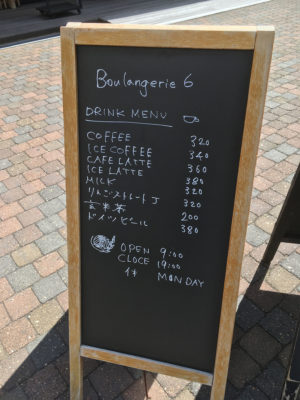 Boulangerie 6
DRINK MENU
COFFEE 320
ICE COFFEE 340
CAFE LATTE 360
ICE LATTE 380
MILK 320
りんごストレートJ 320
玄米茶 200
ドイツビール 380
OPEN 9:00
CLOCE 19:00
休 MONDAY